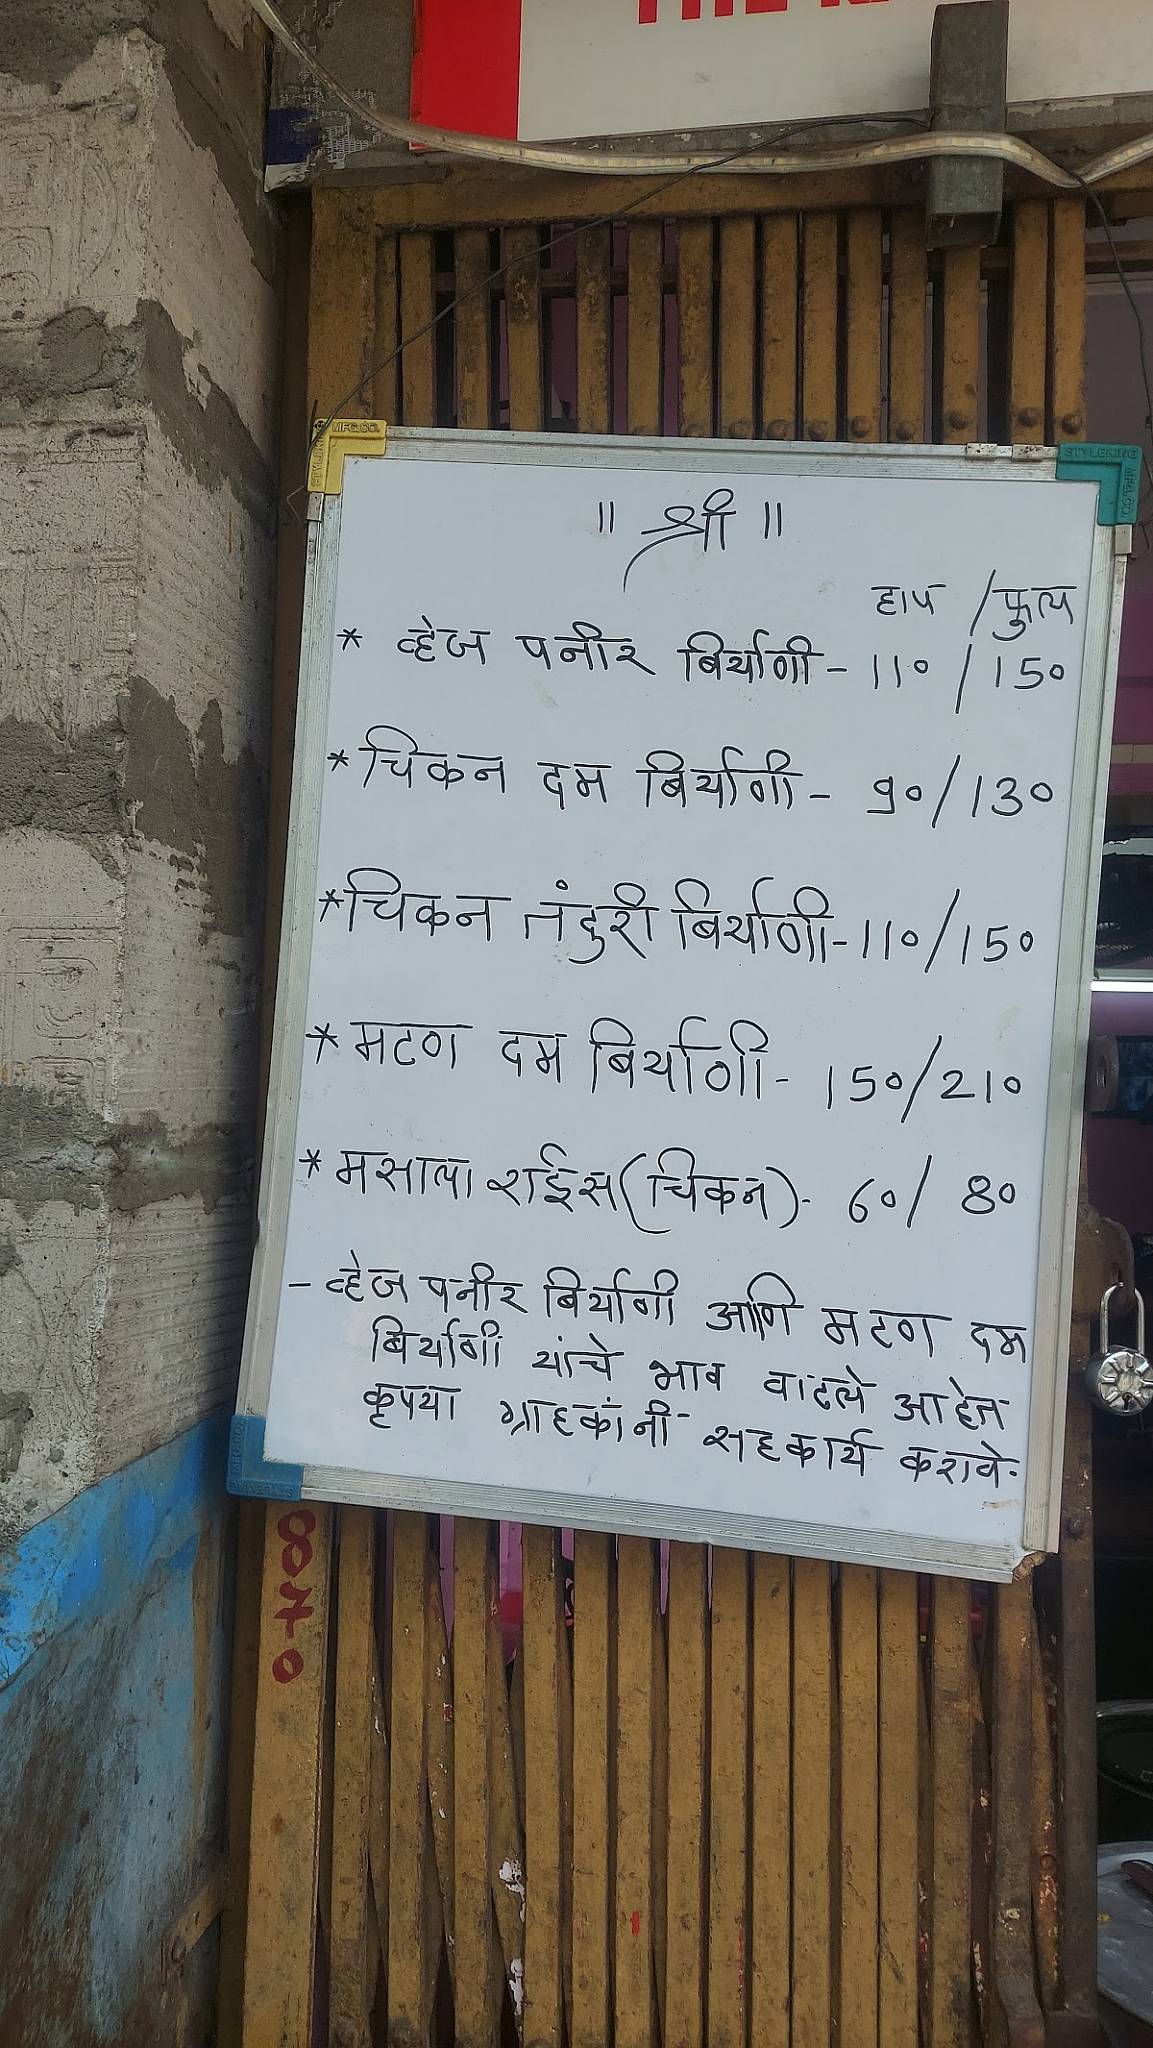 ॥ श्री ॥
हाप / फुल्ल
* व्हेज पनीर बिर्याणी - 110 / 150
* चिकन दम बिर्याणी - 90 / 130
* चिकन तंदुरी बिर्याणी - 110 / 150
* मटण दम बिर्याणी - 150 / 210
* मसाला राईस (चिकन) - 60 / 80
- व्हेज पनीर बिर्याणी आणि मटण दम
बिर्याणी यांचे भाव वाढले आहेत
कृपया ग्राहकांनी सहकार्य करावे.
STYLEKING MFG.CO.
STYLEKING MFG.CO.
STYLEKING MFG.CO.
870